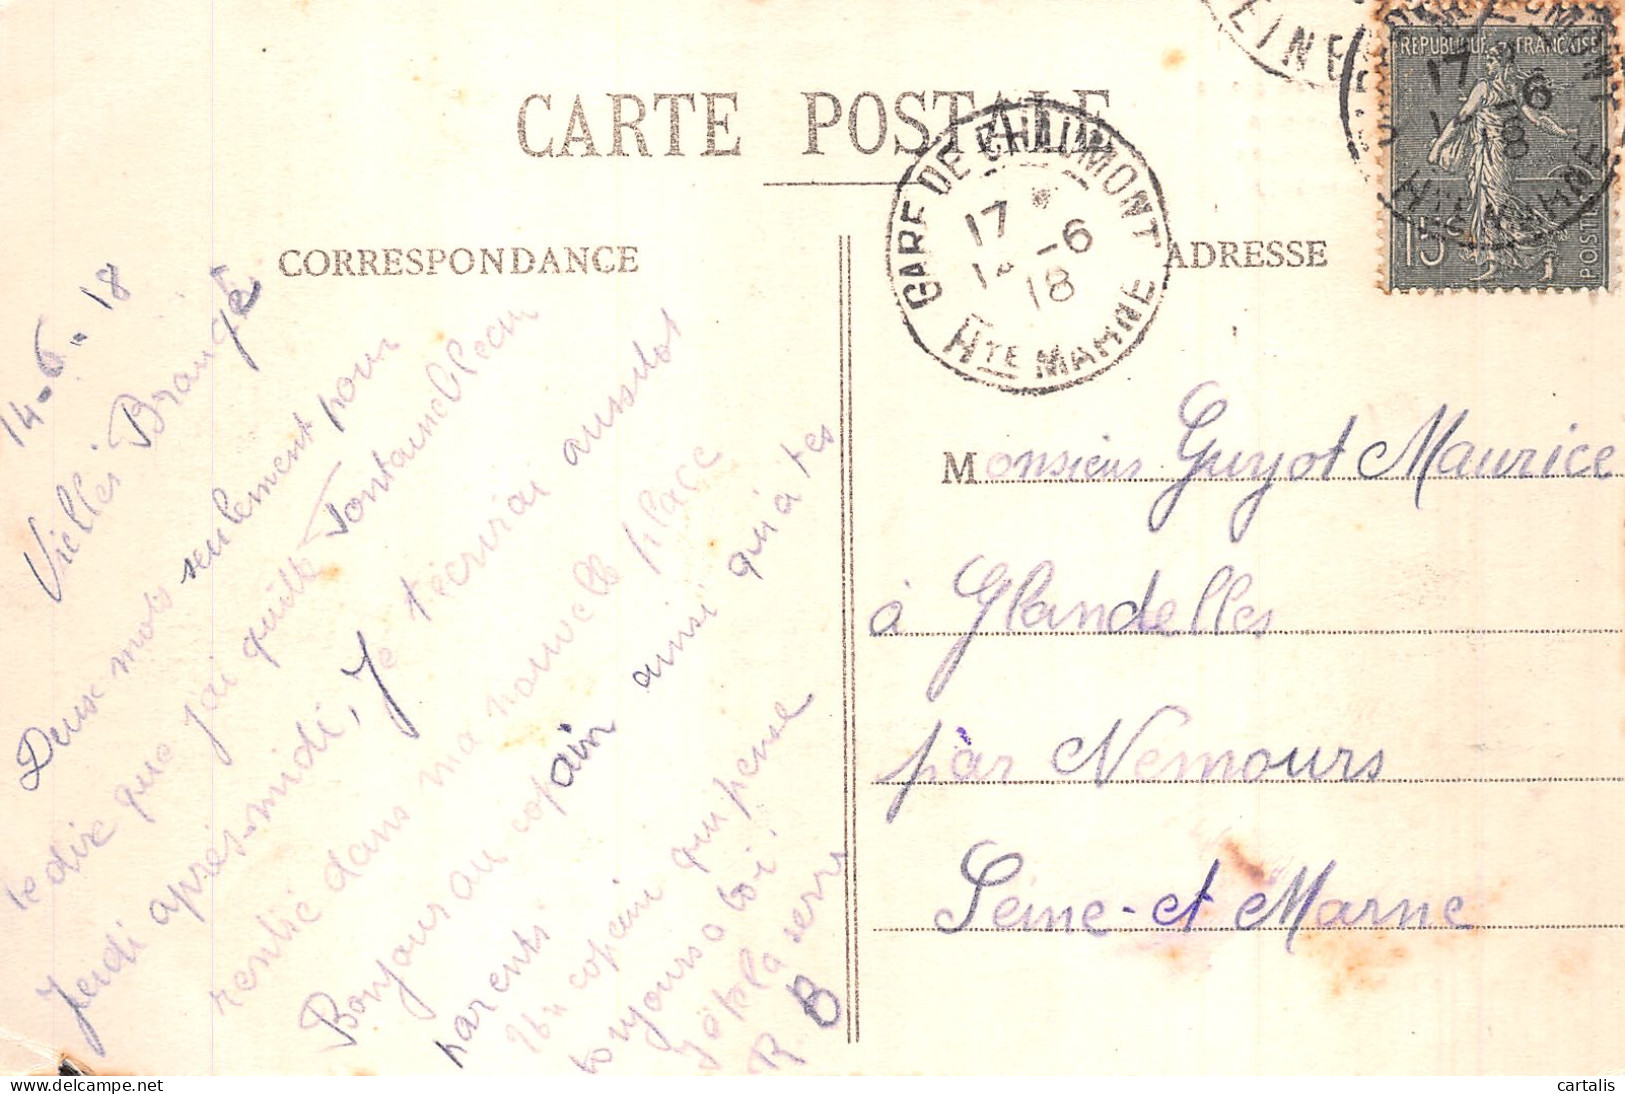 CARTE POSTALE
CORRESPONDANCE
ADRESSE
GARE DE CHAUMONT
17 -6
18
HTE MARNE
EINE
RÉPUBLIQUE FRANÇAISE
17 -6
18
HTE MARNE
15c
POSTES
14-6-18
Vielles
Deux mots seulement pour
te dire que j'ai quitté Fontainebleau
Jeudi après-midi, Je t'écrirai aussitot
rentré dans ma nouvelle place
Bonjour au copain ainsi qu'a tes
parents
un copain qui pense
toujours a toi.
Je te la serre
R. B
Monsieur Guyot Maurice
à Glandelles
par Nemours
Seine-et Marne
cartalis